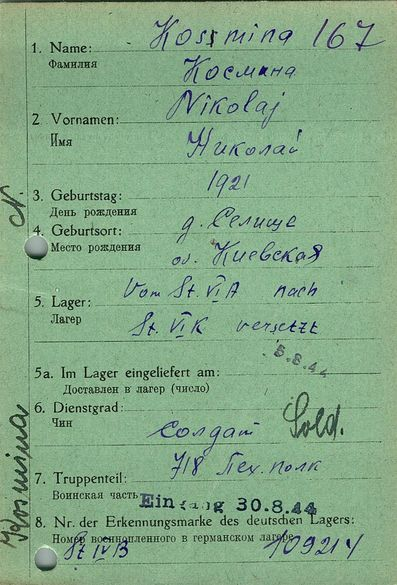 Kossmina 167
1. Name:
Фамилия
Космина
Nikolaj
2. Vornamen:
Имя
Николай
1921
3. Geburtstag:
День рождения
д. Селище
4. Geburtsort:
Место рождения
об. Киевская
Vom St. VI A nach
5. Lager:
Лагерь
St. VI K versetzt
5.8.44
5a. Im Lager eingeliefert am:
Доставлен в лагерь (число)
6. Dienstgrad:
Чин
Солдат Sold.
718 Пех. полк
7. Truppenteil:
Воинская часть
Eingang 30.8.44
8. Nr. der Erkennungsmarke des deutschen Lagers:
Номер военнопленного в германском лагере
St IV B
Kosmina N.